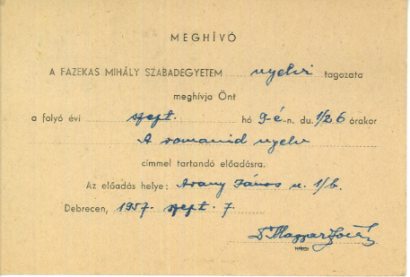 MEGHÍVÓ
A FAZEKAS MIHÁLY SZABADEGYETEM nyelvi tagozata
meghívja Önt
a folyó évi szept. hó 9-é-n. du. 1/2 6 órakor
A romanid nyelv
címmel tartandó előadásra.
Az előadás helye: Arany János u. 1/b.
Debrecen, 1957. szept. 7.
Dr Magyar Zoltán